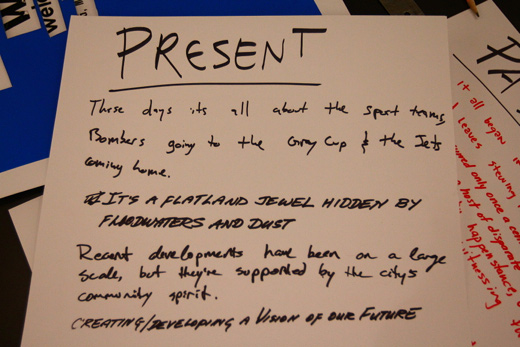 PRESENT
These days its all about the sport teams,
Bombers going to the Grey Cup & the Jets
coming home.
IT'S A FLATLAND JEWEL HIDDEN BY
FLOODWATERS AND DUST
Recent developments have been on a large
scale, but they're supported by the city's
community spirit.
CREATING/DEVELOPING A VISION OF OUR FUTURE
PA
It all began
leaves
only once a
a host of disparate
happenstance,
witnessing